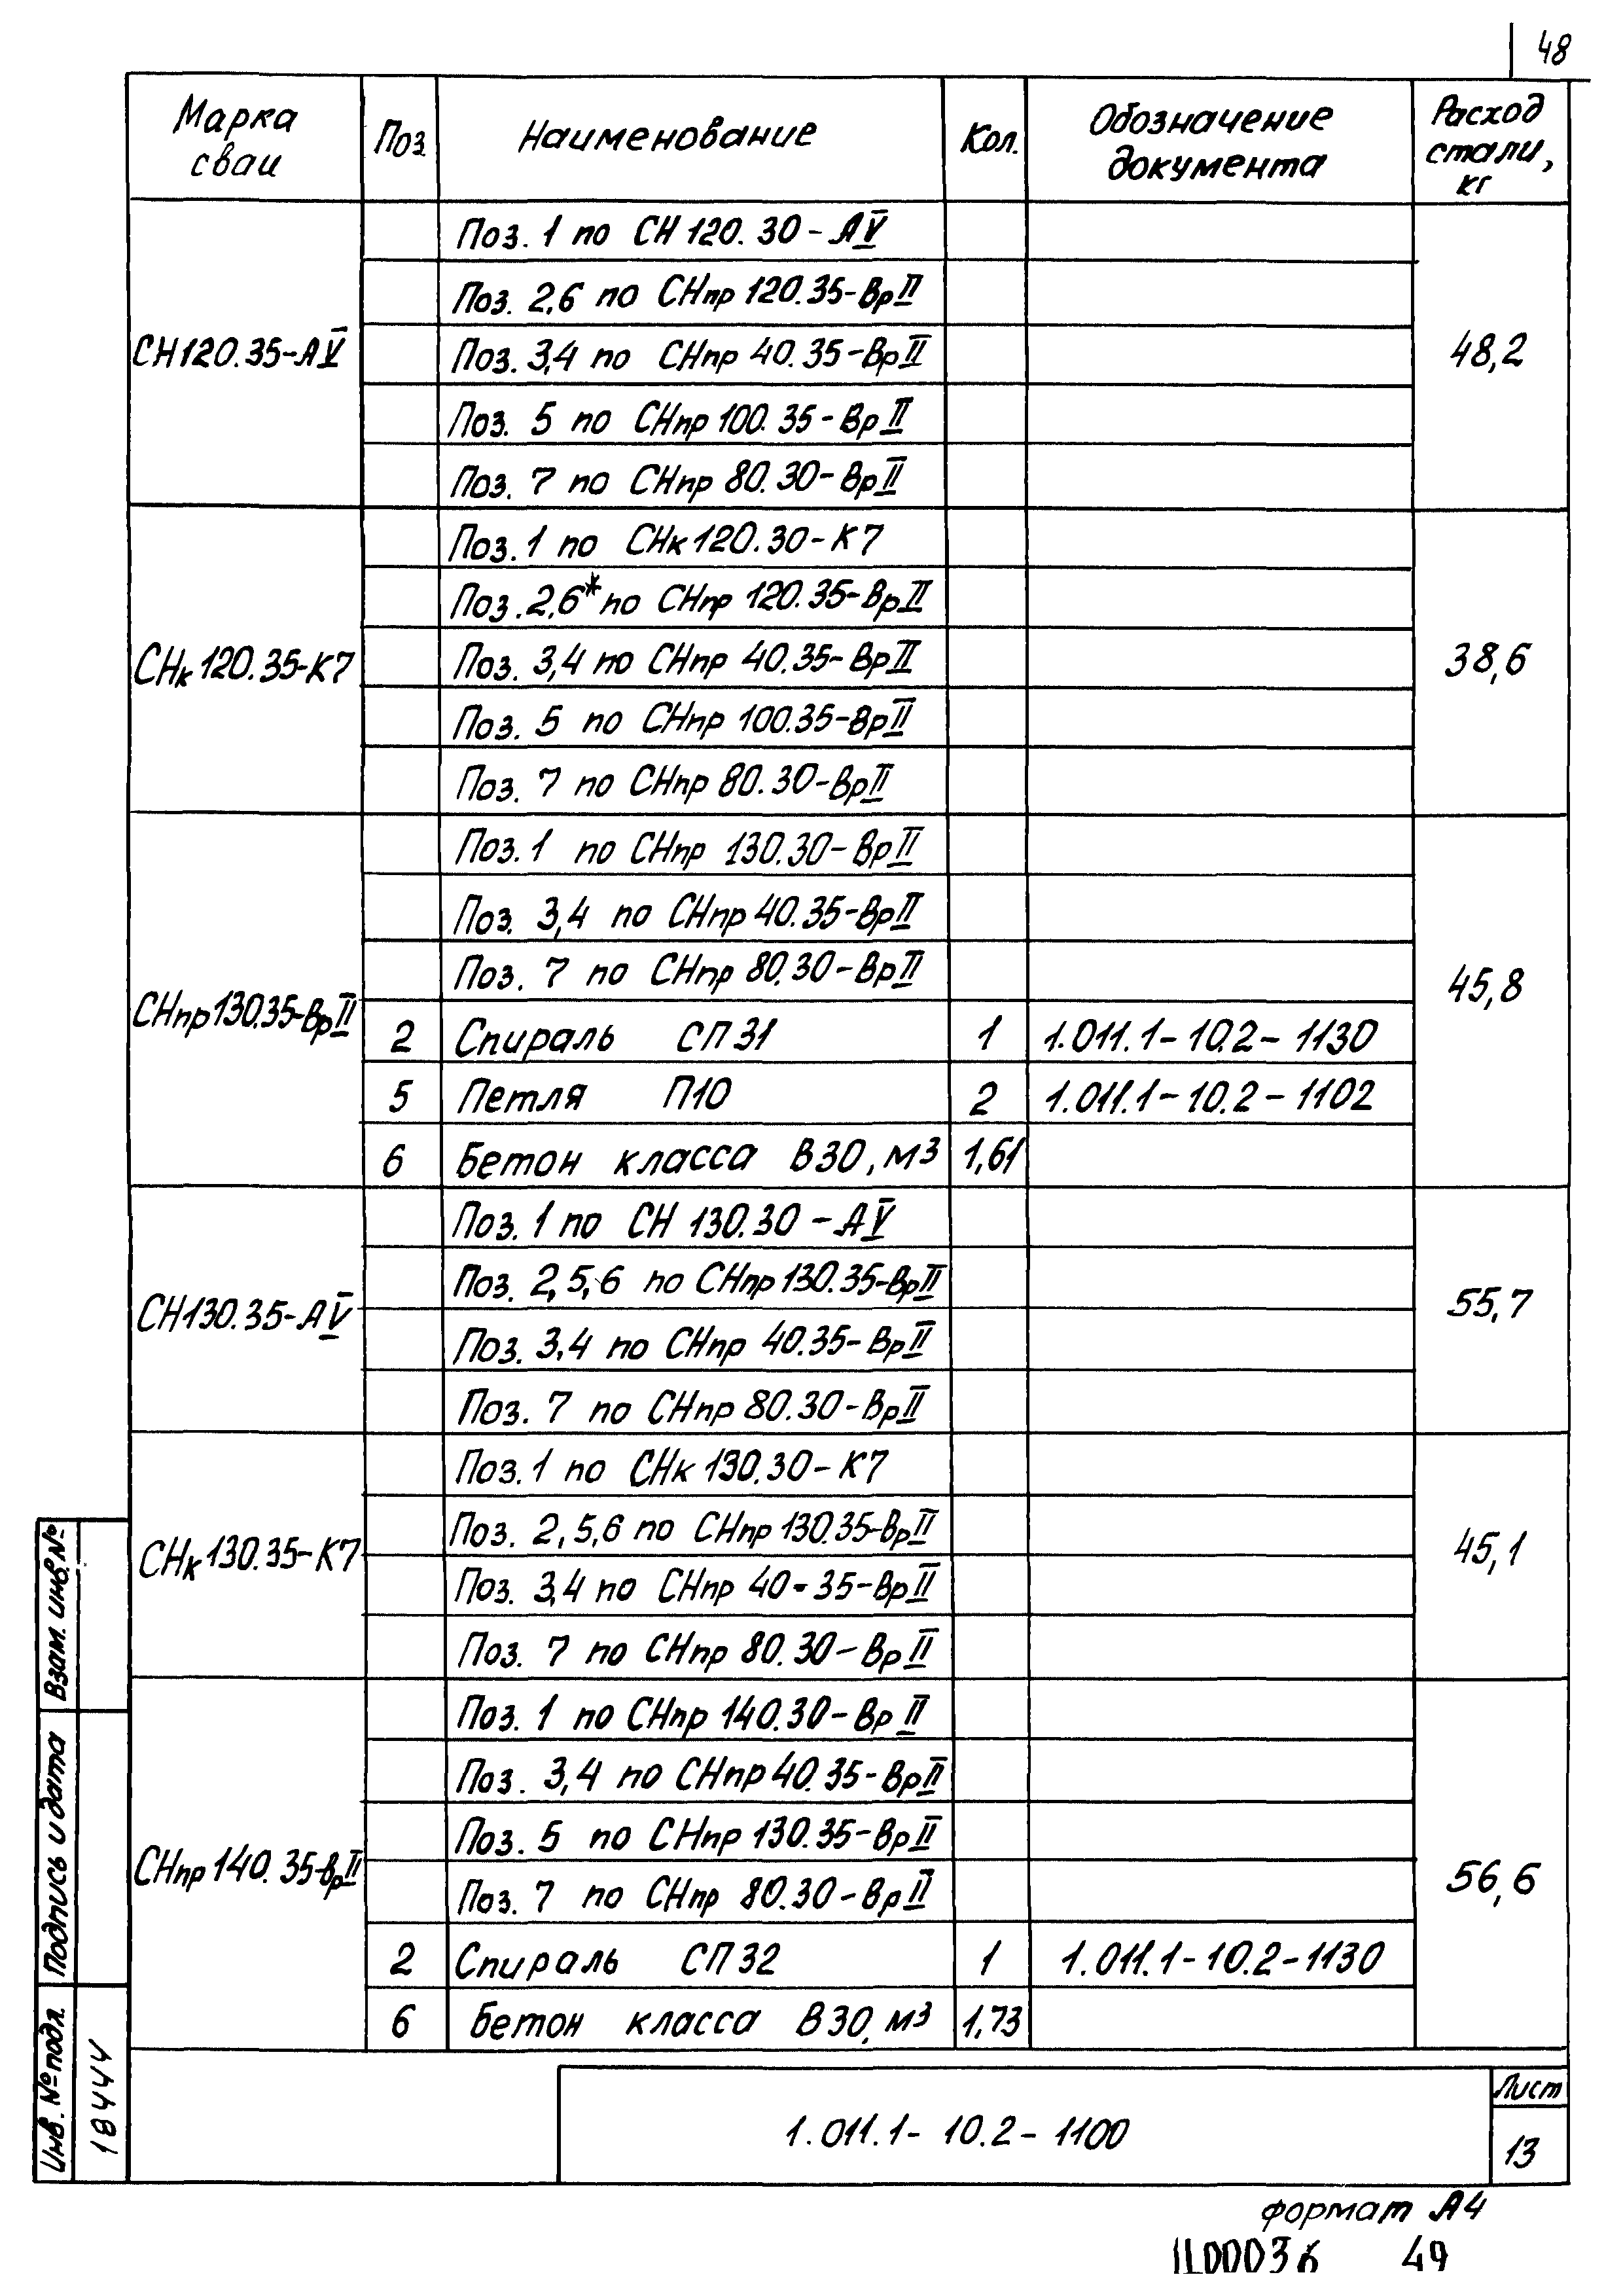 48
Марка сваи
Поз.
Наименование
Кол.
Обозначение документа
Расход стали, кг
СН120.35-АV
Поз. 1 по СН 120.30-АV
Поз. 2,6 по СНпр 120.35-ВрII
Поз. 3,4 по СНпр 40.35-ВрII
Поз. 5 по СНпр 100.35-ВрII
Поз. 7 по СНпр 80.30-ВрII
48,2
СНк 120.35-К7
Поз. 1 по СНк 120.30-К7
Поз. 2,6* по СНпр 120.35-ВрII
Поз. 3,4 по СНпр 40.35-ВрII
Поз. 5 по СНпр 100.35-ВрII
Поз. 7 по СНпр 80.30-ВрII
38,6
СНпр 130.35-ВрII
Поз. 1 по СНпр 130.30-ВрII
Поз. 3,4 по СНпр 40.35-ВрII
Поз. 7 по СНпр 80.30-ВрII
2 Спираль СП31 1 1.011.1-10.2-1130
5 Петля П10 2 1.011.1-10.2-1102
6 Бетон класса В30, м3 1,61
45,8
СН130.35-АV
Поз. 1 по СН 130.30-АV
Поз. 2,5,6 по СНпр 130.35-ВрII
Поз. 3,4 по СНпр 40.35-ВрII
Поз. 7 по СНпр 80.30-ВрII
55,7
СНк 130.35-К7
Поз. 1 по СНк 130.30-К7
Поз. 2,5,6 по СНпр 130.35-ВрII
Поз. 3,4 по СНпр 40-35-ВрII
Поз. 7 по СНпр 80.30-ВрII
45,1
СНпр 140.35-ВрII
Поз. 1 по СНпр 140.30-ВрII
Поз. 3,4 по СНпр 40.35-ВрII
Поз. 5 по СНпр 130.35-ВрII
Поз. 7 по СНпр 80.30-ВрII
2 Спираль СП32 1 1.011.1-10.2-1130
6 Бетон класса В30, м3 1,73
56,6
Взам. инв. №
Подпись и дата
Инв. № подл.
18444
1.011.1-10.2-1100
Лист
13
формат А4
Ц00036 49